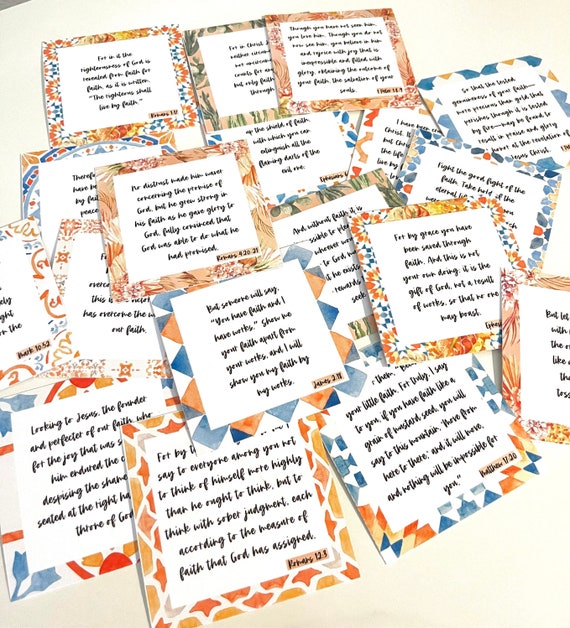 For in it the
righteousness of God is
revealed from faith for
faith, as it is written,
"The righteous shall
live by faith."
Romans 1:17
For in Christ
neither circum
nor uncircum
counts for an
but only faith
through
Though you have not seen him,
you love him. Though you do not
now see him, you believe in him
and rejoice with joy that is
inexpressible and filled with
glory, obtaining the outcome of
your faith, the salvation of your
souls.
1 Peter 1:8-9
So that the tested
genuineness of your faith—
more precious than gold that
perishes though it is tested
by fire—may be found to
result in praise and glory
and honor at the revelation
Jesus Christ.
Therefo
have b
by fa
peace
up the shield of faith,
with which you can
extinguish all the
flaming darts of the
evil one.
Ephesians
I have been cru
Christ.
No distrust made him waver
concerning the promise of
God, but he grew strong in
his faith as he gave glory to
God, fully convinced that
God was able to do what he
had promised.
Romans 4:20-21
Fight the good fight of the
faith. Take hold of the
eternal
And without faith it is
For by grace you have
been saved through
faith. And this is
not your own doing; it is the
gift of God, not a result
of works, so that no one
may boast.
Ephes
Mark 10:52
has overcome the wo
our faith.
But someone will say,
"You have faith and I
have works." Show me
your faith apart from
your works, and I will
show you my faith by
my works.
James 2:18
But let
Looking to Jesus, the founder
and perfecter of our faith, who
for the joy that was s
him endured the c
despising the shame
seated at the right ha
throne of God
For by t
say to everyone among you not
to think of himself more highly
than he ought to think, but to
think with sober judgment, each
according to the measure of
faith that God has assigned.
Romans 12:3
your little faith. For truly, I say
to you, if you have faith like a
grain of mustard seed, you will
say to this mountain, 'Move from
here to there,' and it will move,
and nothing will be impossible for
you."
Matthew 17:20